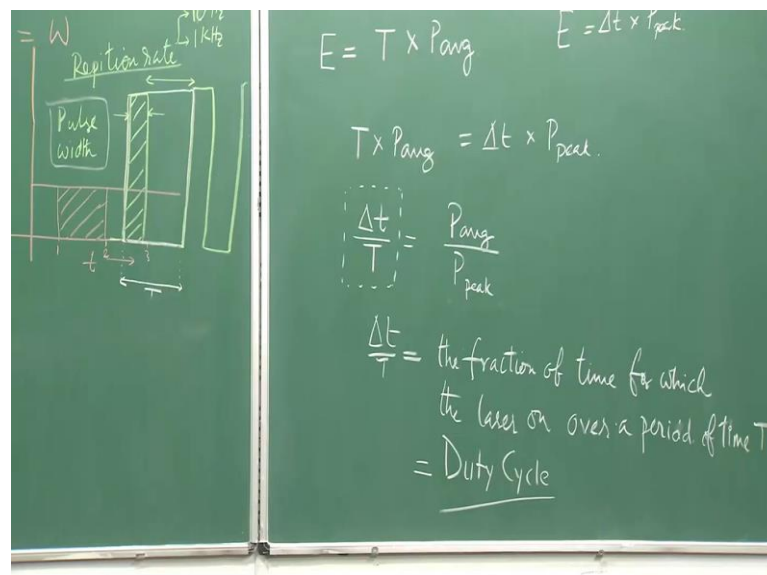 = W
10 Hz
1 KHz
Repition rate
Pulse
width
t
T
E = T × Pavg
E = Δt × Ppeak.
T × Pavg = Δt × Ppeak.
Δt/T = Pavg/Ppeak
Δt/T = the fraction of time for which
the laser on over a period of time T
= Duty Cycle